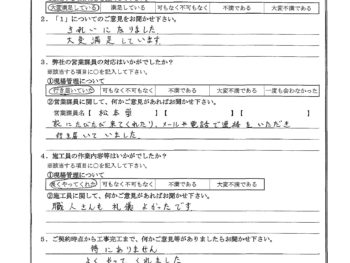 大変満足している 満足している 可もなく不可もなく 不満である 大変不満である
2．「1」についてのご意見をお聞かせ下さい。
きれいになりました
大変満足しています
3．弊社の営業課員の対応はいかがでしたか？
※該当する項に○を記入して下さい。
①現場管理について
行き届いていた 可もなく不可もなく 不満である 大変不満である 一度も会わなかった
②営業課員に関して、何かご意見があればお聞かせ下さい。
営業課員名【 松本 】【 】【 】
家にたびたび来てくれたり、メールや電話で連絡をいただき
行き届いていました。
4．施工員の作業内容等はいかがでしたか？
※該当する項目に○を記入して下さい。
①現場管理について
良くやってくれた 可もなく不可もなく 不満である 大変不満である
②施工員に関して、何かご意見があればお聞かせ下さい。
職人さんも礼儀よかったです
5．ご契約時点から工事完工まで、何かご意見等がありましたらお聞かせ下さい。
特にありません
よくやってくれました